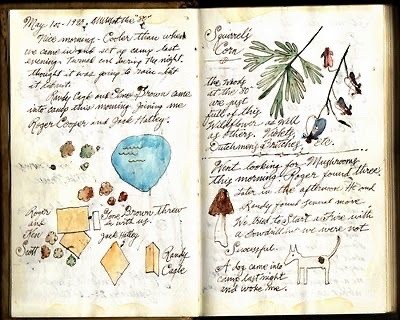 May 1st - 1982,
Nice morning - Cooler than when
we came in and set up camp last
evening. Turned cool during the night.
Thought it was going to rain - but
it did not.
Randy Cagle and Gene Brown came
into camp this morning joining me
Roger Cooper and Jack Hatley.
Roger
and
Ken
Scott
Gene Brown threw
in with us.
Jack Hatley
Randy
Cagle
Squirrels
Corn
the woods
at the 
we just
full of this
Wildflower as well
as others. Violets,
Dutchmens Britches, etc.
Went looking for Mushrooms
this morning - Roger found three.
Later in the afternoon He and
Randy found several more
We tried to Start a Fire with
a Bowdrill but we were not
Sucessful.
A dog came into
camp last night
and woke me.